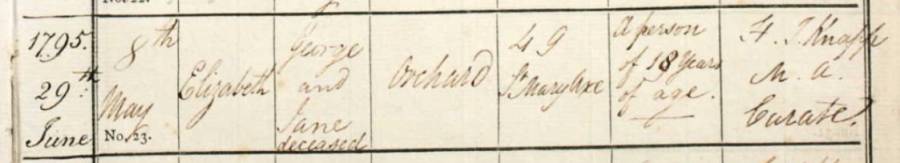 1795.
29th
June
8th
May
No. 23.
Elizabeth
George
and
Jane
deceased
Orchard
49
St Mary Axe
A person
of 18 Years
of age.
H. J. Knapp
M. A.
Curate.